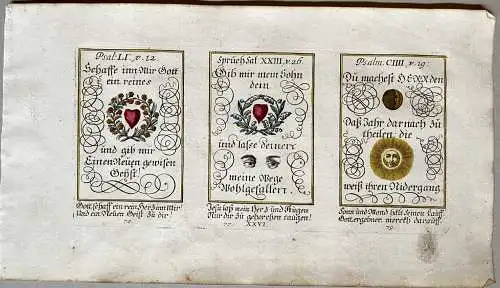 Psal: LI, v. 12.
Schaffe inn Mir Gott
ein reines
und gib mir
Einen Neuen gewisen
Geist!
Gott schaff ein rein Herz inn Mir
Und ein Neuen Geist zu dir
Sprüch Sal XXIII, v 26.
Gib mir mein Sohn
dein
und lasse deinen
meine Wege
Wohlgefallen.
Jesu laß mein Herz und Augen
Nur dir zu gehorchen taugen!
XXVI.
Psalm. CIIII, v. 19.
Du machest HERR den
Daß Jahr darnach zu
theilen die
weiß ihren Nidergang
Sonn und Mond hält seinen Lauff
Gottergebner, merckh darauff.